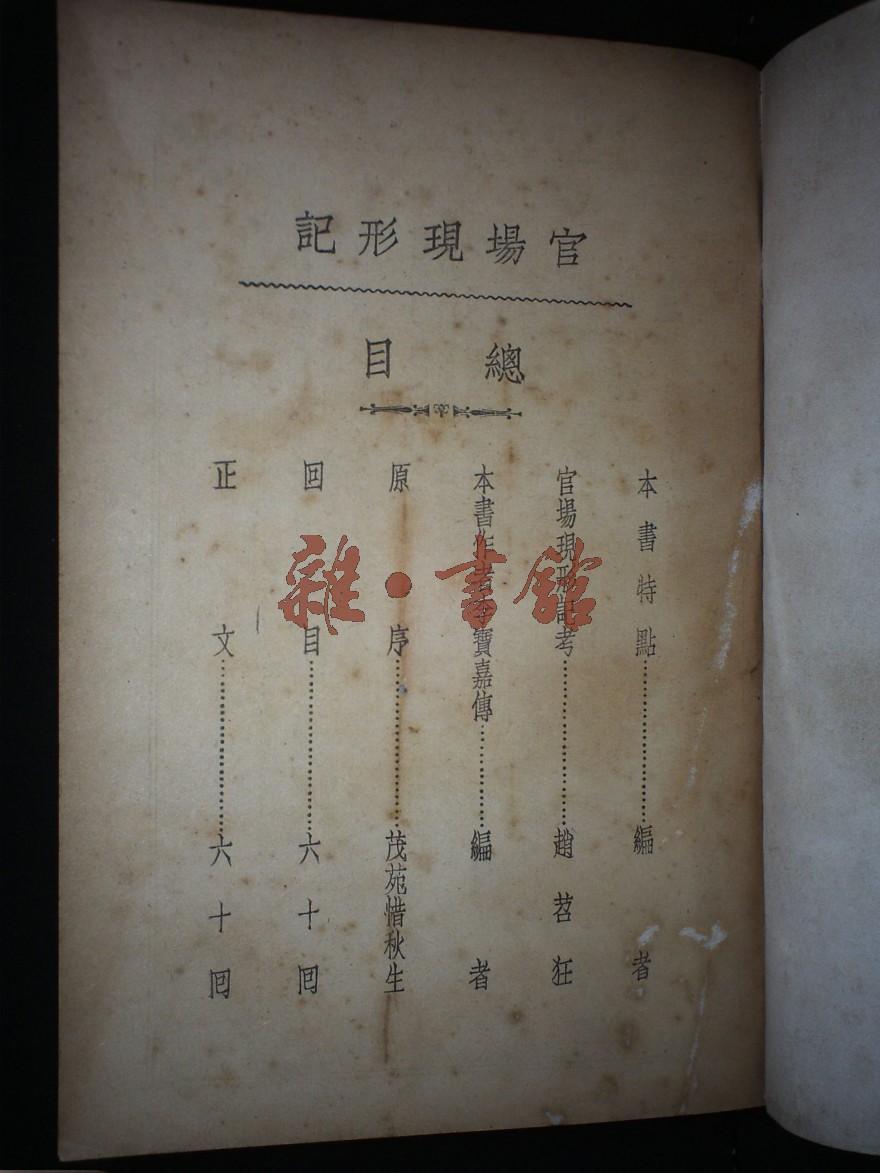 官場現形記
總目
本書特點……………………編者
官場現形記考……………………趙苕狂
本書作者李寶嘉傳……………編者
原序……………………茂苑惜秋生
回目……………………六十回
正文……………………六十回
雜·書館